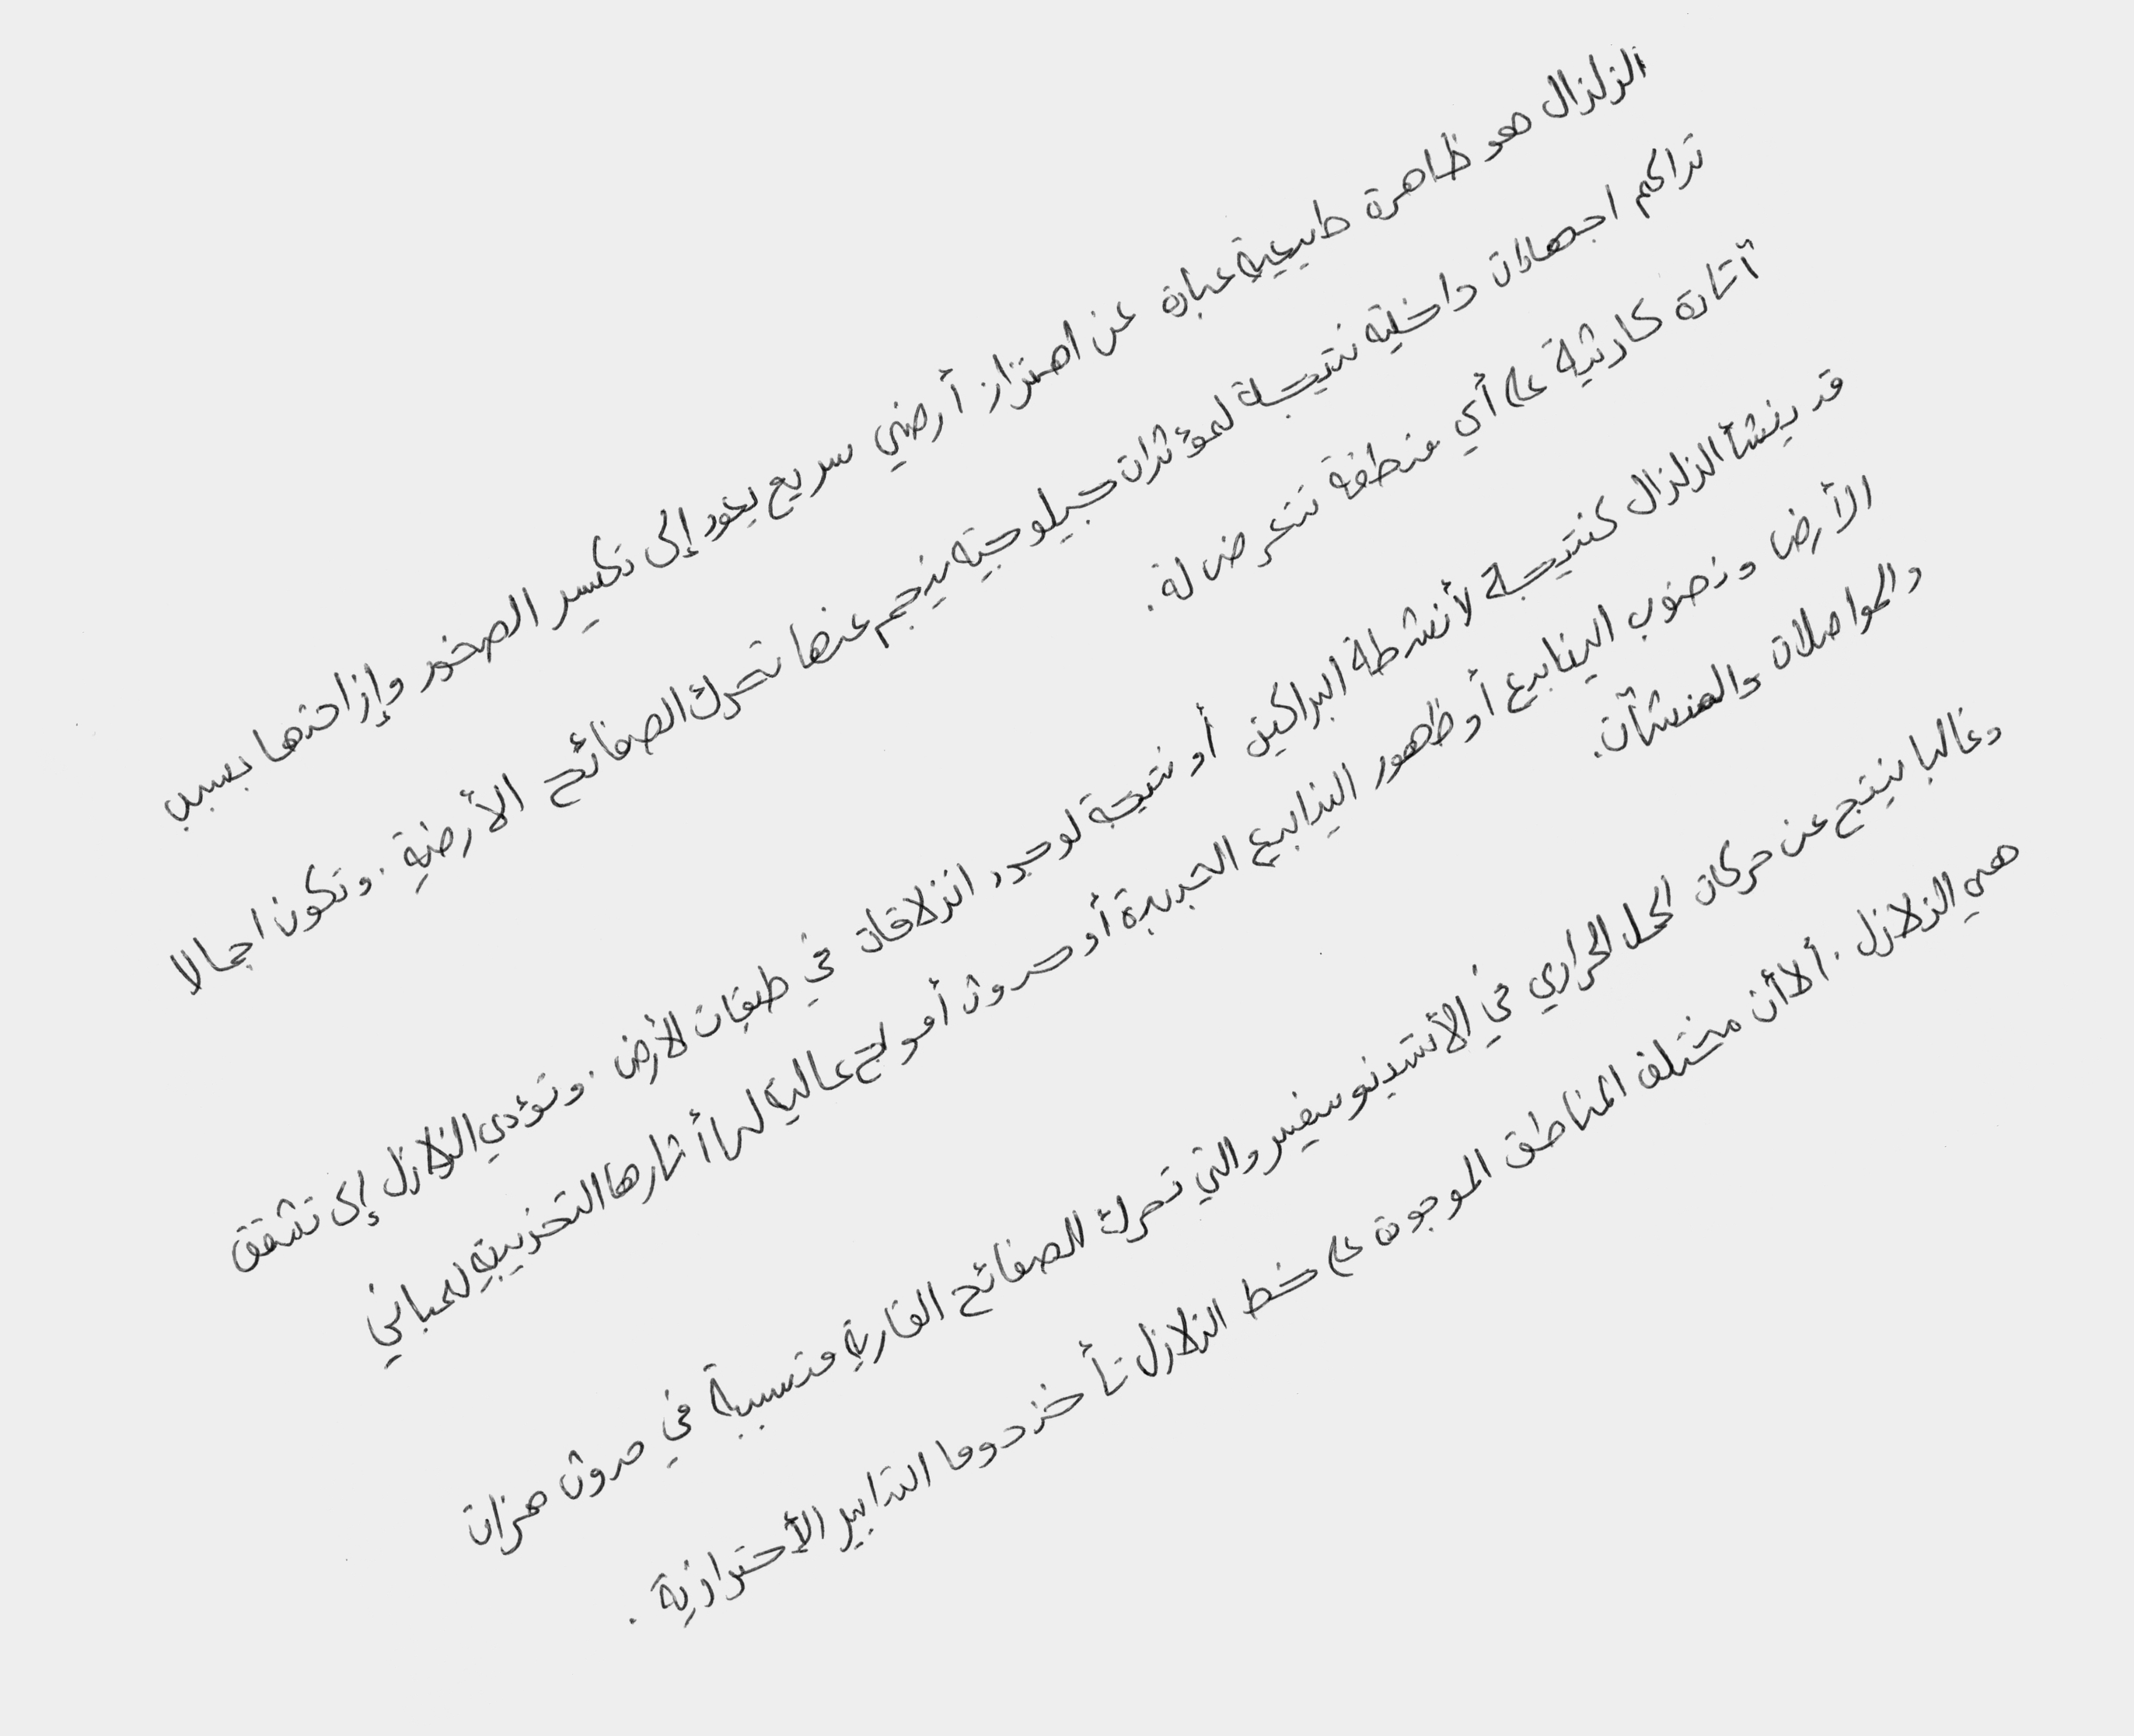 الزلزال هو ظاهرة طبيعية عبارة عن اهتزاز أرضي سريع يعود إلى تكسير الصخور وإزاحتها بسبب
تراكم اجهادات داخلية نتيجة لمؤثرات جيلوجية ينجم عنها تحرك الصفائح الأرضية. وتكون اجمالا
آثاره كارثية على أي منطقة تتعرض له.
قد ينشأ الزلزال كنتيجة لأنشطة البراكين أو نتيجة لوجود انزلاقات في طبقات الأرض. وتؤدي الزلازل إلى تشقق
الأرض ونضوب الينابيع أو ظهور الينابيع الجديدة أو حدوث أمواج عالية لها أثارها التخريبية للمباني
والمواصلات والمنشآت.
وغالبا ينتج عن حركات الحمل الحراري في الأستينوسفير والتي تحرك الصفائح القارية متسببة في حدوث هزات
هي الزلازل. ألا أن مختلف المناطق الموجودة على خط الزلازل تأخذ دوما التدابير الأحترازية.